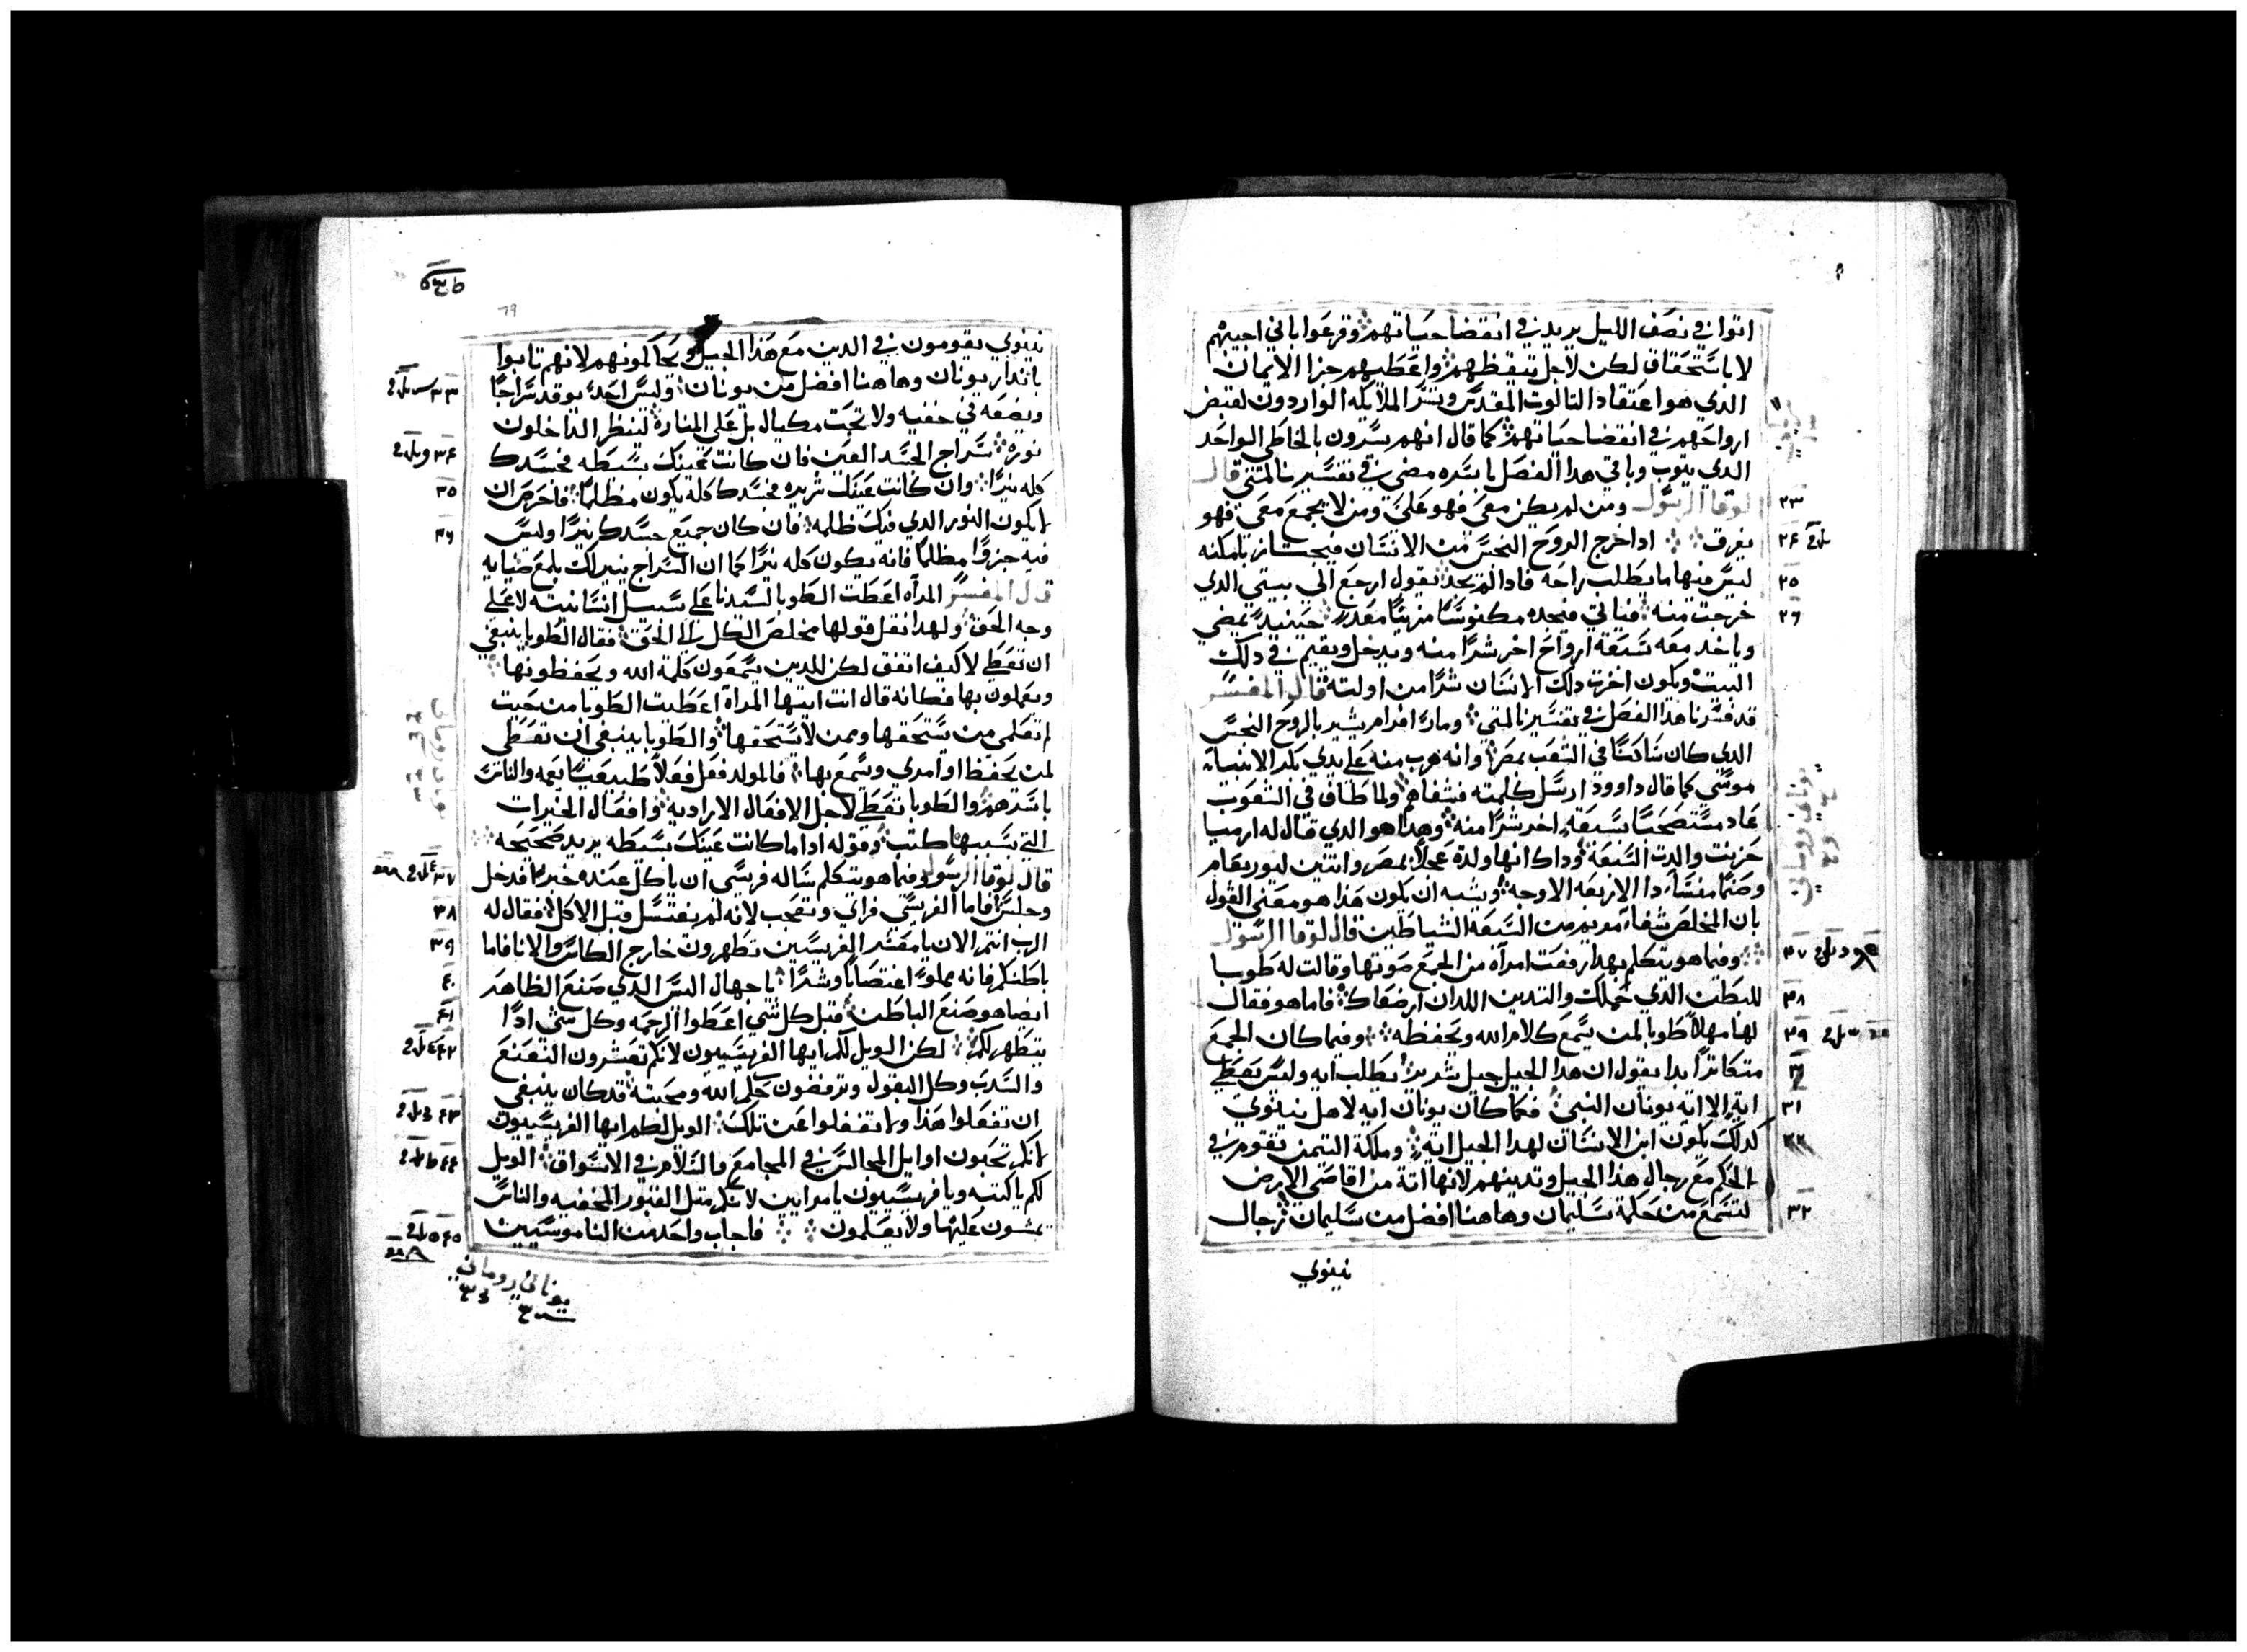 اتوا في نصف الليل يريد في انقضا حياتهم وقرعوا باني اجيبهم
لا باستحقاق لكن لاجل تيقظهم واعطيهم جزا الايمان
الذي هو اعتقاد التالوت المقدس وتسر الملايكه الواردون لقبض
ارواحهم في انقضا حياتهم كما قال انهم يسرون بالخاطي الواحد
الدي يتوب وباقي هدا الفصل باسره مضى في تفسيرنا لمتي قال
لوقا الرسول ومن لم يكن معي فهو علي ومن لا يجمع معي فهو
يفرق ادا خرج الروح النجس من الانسان فيجتاز بامكنه
ليس فيها ما يطلب راحه فادا لم يجد يقول ارجع الي بيتي الدي
خرجت منه فياتي فيجده مكنوسا مزينا معدا حينيد يمضي
وياخد معه سبعة ارواح اخر شرا منه ويدخل ويقيم في دلك
البيت ويكون اخرة دلك الانسان شرا من اولته قال المفسر
قد فسرنا هدا الفصل في تفسيرنا لمتي ومار افرام يشير بالروح النجس
الدي كان ساكنا في الشعب بمصر وانه هرب منه علي يدي بكر الانبيا
موسي كما قال داوود ارسل كلمته فشفاهم ولما طاف في الشعوب
عاد مستصحبا بسبعة اخر شرا منه وهدا هو الدي قال له ارميا
حزنت والدت السبعة وداك انها ولدة عجلا بمصر واتنين ليوربعام
وصنما منسا دا الاربعه الاوجه ويشبه ان يكون هدا هو معني القول
بان المخلص شفا مريم من السبعة الشياطين قال لوقا الرسول
وفيما هو يتكلم بهدا رفعت امراه من الجمع صوتها وقالت له طوبا
للبطن الذي حملك والتديين اللدان ارضعاك فاما هو فقال
لها مهلا طوبا لمن يسمع كلام الله ويحفظه وفيما كان الجمع
متكاترا بدا يقول ان هدا الجيل جيل شرير يطلب ايه وليس يعطي
ايه الا ايه يونان النبي فكما كان يونان ايه لاهل نينوي
كدلك يكون ابن الانسان لهدا الجيل ايه وملكة التيمن تقوم في
الحكم مع رجال هدا الجيل وتدينهم لانها اتة من اقاصي الارض
لتسمع من حكمة سليمان وهاهنا افضل من سليمان رجال
نينوي
٢٣
٢٤
٢٥
٢٦
٢٧
٢٨
٢٩
٣١
٣٢
نينوي يقومون في الدين مع هدا الجيل ويحاكمونهم لانهم تابوا
بانذار يونان وهاهنا افضل من يونان وليس احد يوقد سراجا
ويضعه في خفيه ولا تحت مكيال بل علي المنارة لينظر الداخلون
نوره سراج الجسد العين فان كانت عينك بسيطه فجسدك
كله نيرا وان كانت عينك شريره فجسدك كله يكون مظلما فاحرص ان
لا يكون النور الدي فيك ظلمه فان كان جميع جسدك نيرا وليس
فيه جزوا مظلما فانه يكون كله نيرا كما ان السراج ينيرلك بلمع ضيايه
قال المفسر المراه اعطت الطوبا لسيدنا علي سبيل انسانيته لا علي
وجه الحق ولهدا نقل قولها مخلص الكل الي الحق فقال الطوبا ينبغي
ان تعطي لا كيف اتفق لكن للدين يسمعون كلمة الله ويحفظونها
ويعملون بها فكانه قال انت ايتها المراه اعطيت الطوبا من حيت
لم تعلمي من يستحقها ومن لا يستحقها والطوبا ينبغي ان تعطي
لمن يحفظ اوامري ويسمع بها فالمولد فعل فعلا طبيعيا يعمه والناس
باسرهم والطوبا تعطي لاجل الافعال الاراديه وافعال الخيرات
التي بسببها كتب وقوله ادا ما كانت عينك بسيطه يريد صحيحه
قال لوقا الرسول وفيما هو يتكلم ساله فريسي ان ياكل عنده خبزا فدخل
وجلس فاما الفريسي فراي وتعجب لانه لم يغتسل قبل الاكل فقال له
الرب انتم الان يا معشر الفريسيين تطهرون خارج الكاس والانا فاما
باطنكم فانه مملوا اغتصابا وشرا يا جهال اليس الدي صنع الظاهر
ايضا هو صنع الباطن قبل كل شي اعطوا الرحمه وكل شي ادا
يتطهر لكم لكن الويل لكم ايها الفريسيون لانكم تعشرون النعنع
والسدب وكل البقول وترفضون حكم الله ومحبته قد كان ينبغي
ان تفعلوا هدا ولا تغفلوا عن تلك الويل لكم ايها الفريسيون
لانكم تحبون اوايل المجالس في المجامع والسلام في الاسواق الويل
لكم يا كتبه ويا فريسيون يا مرايين لانكم متل القبور المخفيه والناس
يمشون عليها ولا يعلمون فاجاب واحد من الناموسيين
٣٣
٣٤
٣٥
٣٦
٣٧
٣٨
٣٩
٤٠
٤١
٤٢
٤٣
٤٤
٤٥
يوناني روماني